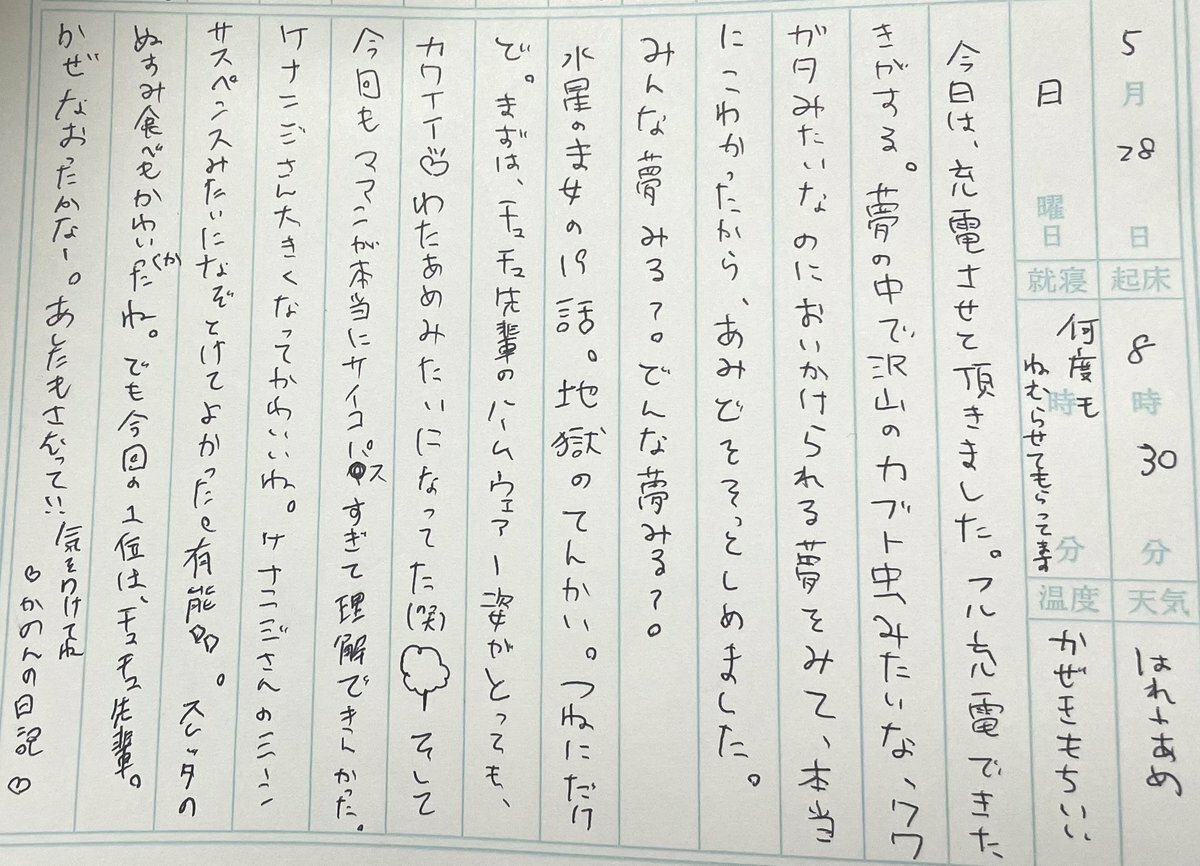 5月28日
日曜日
起床 8時30分
就寝 何度も ねむらせてもらってます 時 分
天気 はれ→あめ
温度 かぜきもちいい
今日は、充電させて頂きました。フル充電できた
きがする。夢の中で沢山のカブト虫みたいな、クワ
ガタみたいなのにおいかけられる夢をみて、本当
にこわかったから、あみどをそっとしめました。
みんな夢みる?。どんな夢みる?。
水星のま女の19話。地獄のてんかい。つねにだけ
ど。まずは、チュチュ先輩のルームウェアー姿がとっても、
カワイイ♡わたあめみたいになってた(笑) そして
今回もママンが本当にサイコパスすぎて理解できんかった。
ケナンジさん大きくなってかわいいね。ケナンジさんのシーン
サスペンスみたいになぞとけてよかった。有能。スレッタの
ぬすみ食べもかわいかったね。でも今回の1位は、チュチュ先輩。
かぜなおったかなー。あしたもさむってい!! 気をつけてね
♡かのんの日記♡